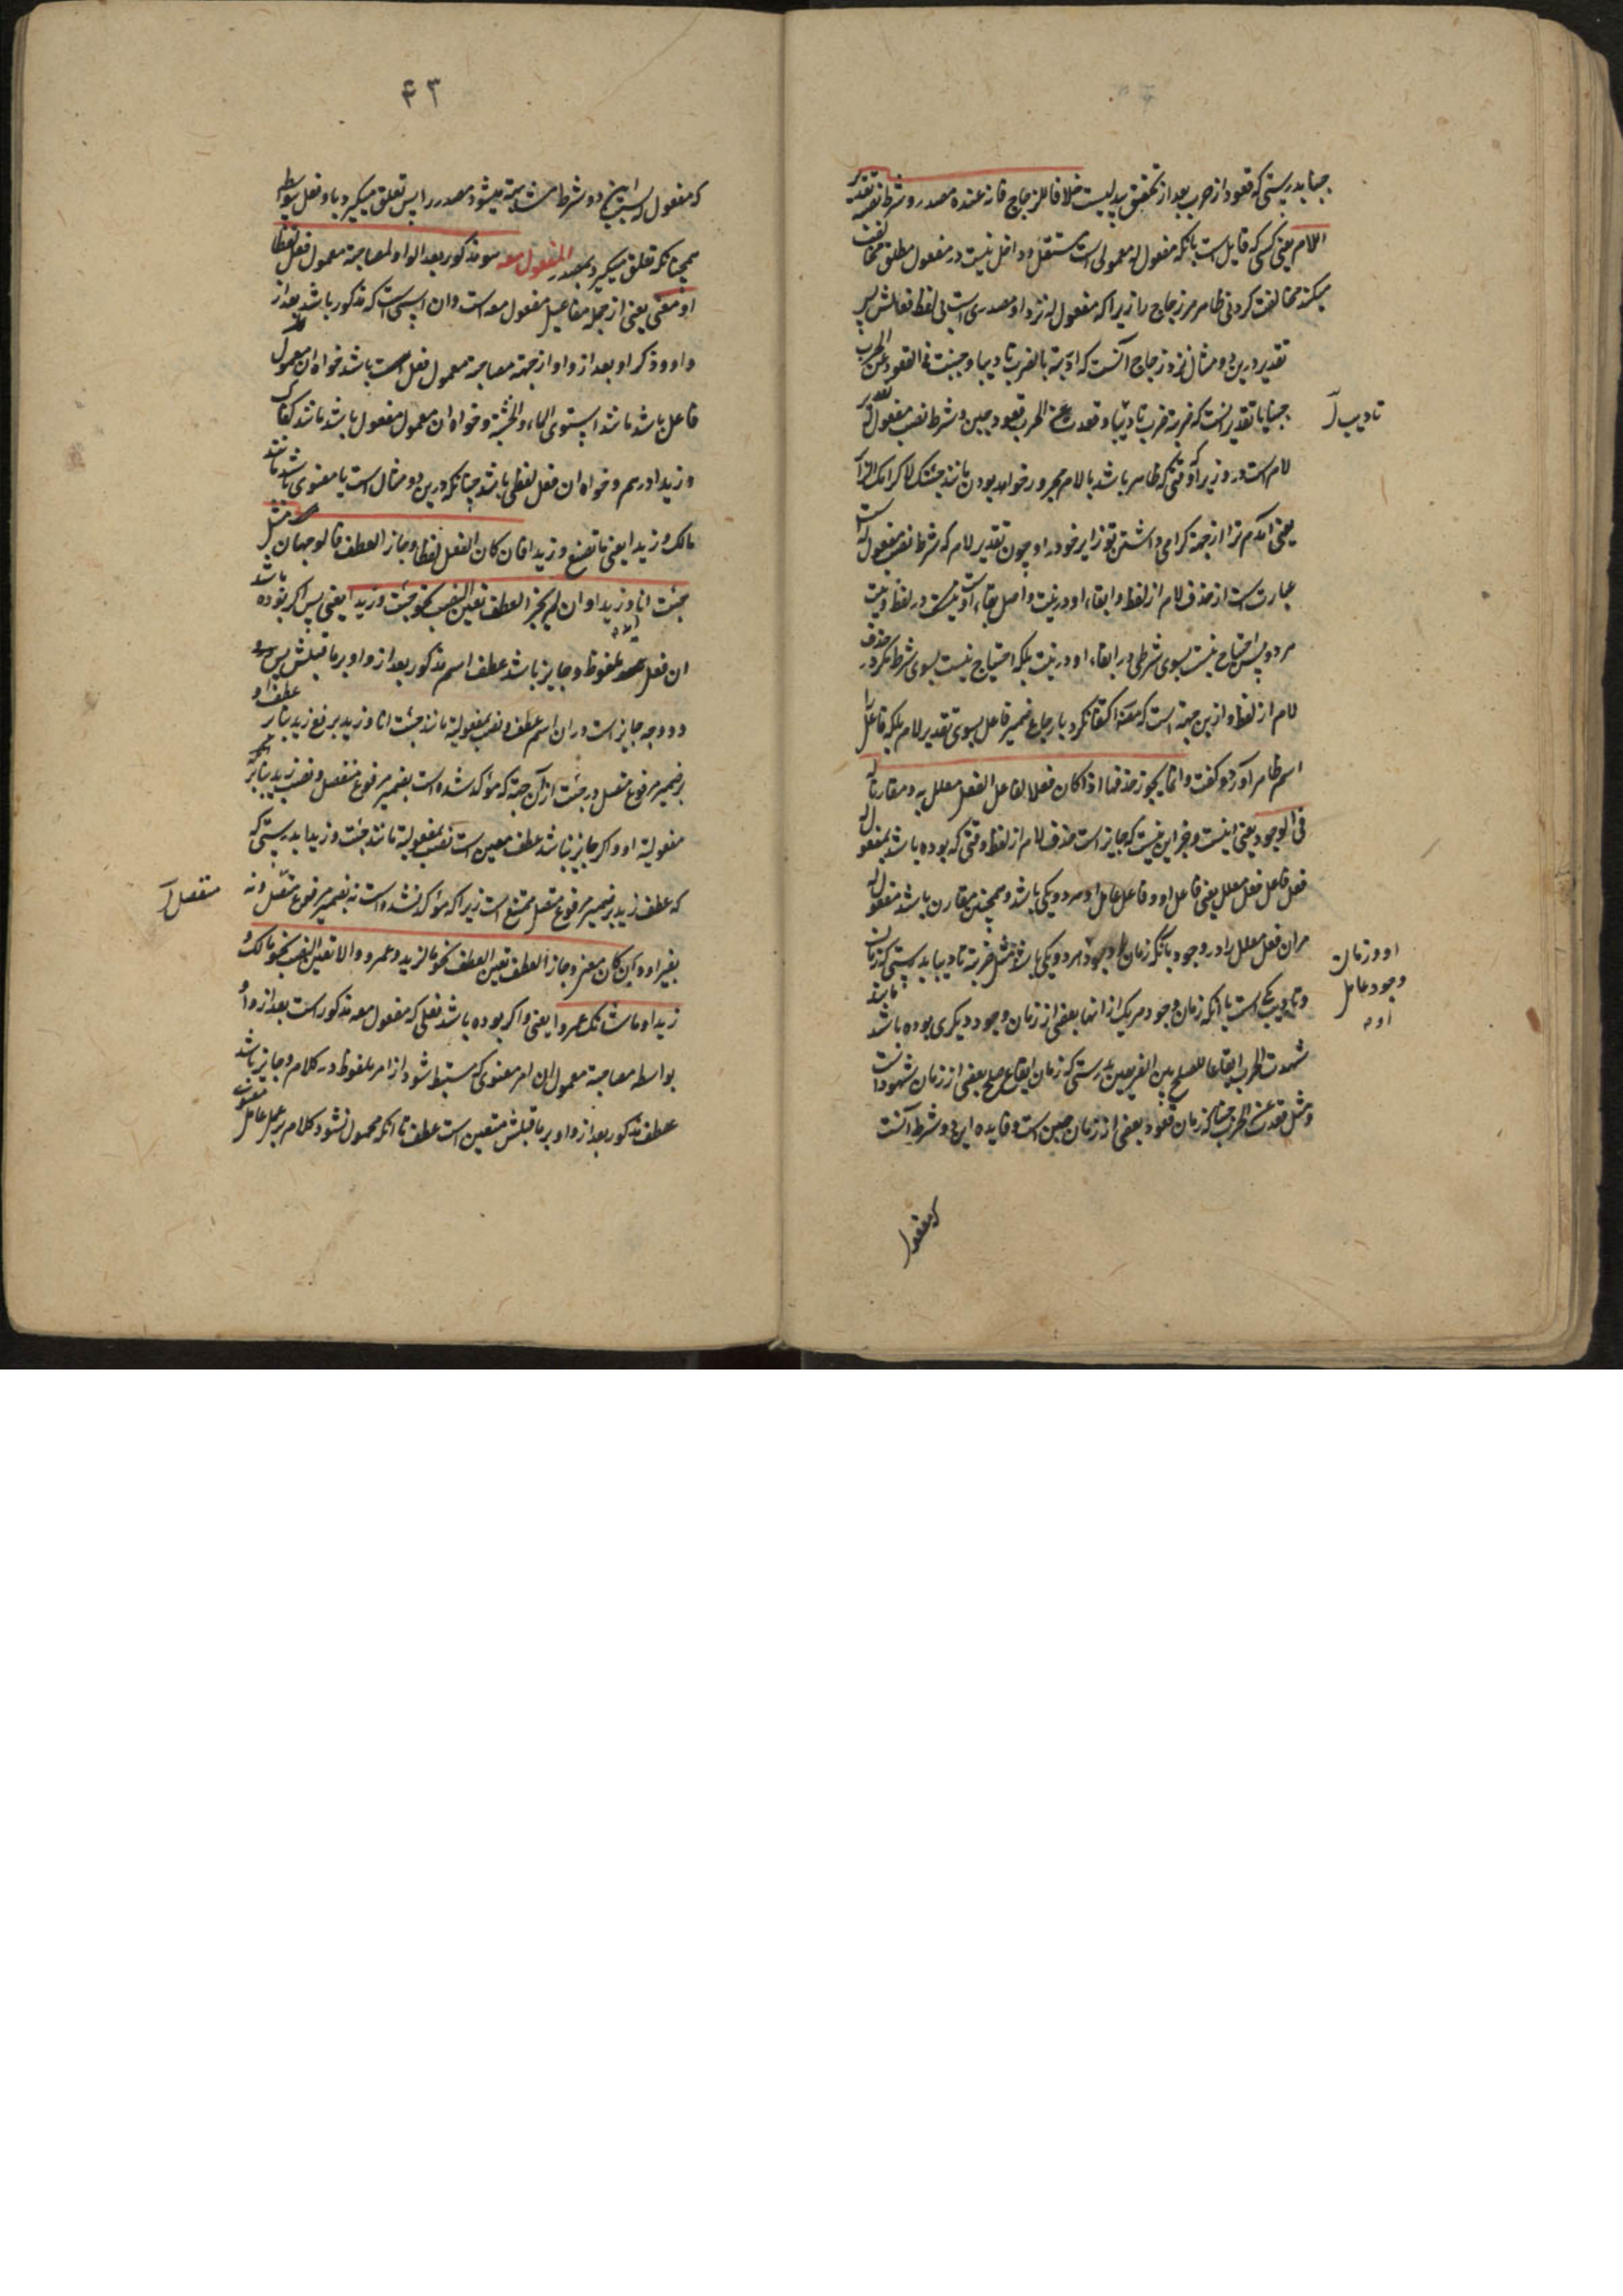 جبنا بدرستی که قعود از حرب بعد از تحقق جبن است خلافا للزجاج فانه عنده مصدر و شرط نصبه تقدیر
اللام یعنی کسی که قایل است بانکه مفعول له معمولی است مستقل و داخل نیست در مفعول مطلق مخالفت
میکند مخالفت کردنی ظاهر مر زجاج را زیرا که مفعول له نزد او مصدری است بی لفظ فعلش پس
تقدیر درین دو مثال نزد زجاج آنست که ادبته بالضرب تادیبا و جبنت فی القعود عن الحرب
جبنا یا تقدیر اینست که ضربته ضرب تادیب و قعدت عن الحرب قعود جبن و شرط نصب مفعول له تقدیر
تادیب
لام است در وزیر که وقتی که ظاهر باشد با لام مجرور خواهد بودن مانند جئتک لاکرامک الزائر
یعنی آمدم ترا از جهة کرامی داشتن تو زایر خود را و چون تقدیر لام که شرط نصب مفعول له است
عبارت است از حذف لام از لفظ و ابقاء او در نیت و اصل بقاء او نیست در لفظ و نیت
هر دو پس احتیاج نیست بسوی شرطی در ابقاء او در نیت بلکه احتیاج نیست بسوی شرط مگر در حذف
لام از لفظ و ازین جهة است که مصنف اکتفا نکرد بارجاع ضمیر فاعل بسوی تقدیر لام بلکه فاعل را
اسم ظاهر آورد و گفت و انما یجوز حذفها اذا کان فعلا لفاعل الفعل المعلل به و مقارنا له
فی الوجود یعنی اینست و جز این نیست که جایز است حذف لام از لفظ وقتی که بوده باشد مفعول له
فعل فاعل فعل معلل یعنی فاعل او و فاعل عامل او هر دو یکی باشد و همچنین مقارن باشد مفعول له
مر ان فعل معلل را در وجود بانکه زمان وجود هر دو یکی باشد مثل ضربته تادیبا بدرستی که زمان
او و زمان
وجود عامل
او
و تادیب یکی است یا آنکه زمان وجود هر یک از انها بعضی از زمان وجود دیگری بوده باشد مانند
شهدت الحرب ایقاعا للصلح بین الفریقین بدرستی که زمان ایقاع صلح بعضی از زمان شهود است
و مثل قعدت عن الحرب جبنا که زمان قعود بعضی از زمان جبن است و فایده این دو شرط آنست
که مفعول
۴۳
که مفعول له بسبب این دو شرط مشابه میشود مصدر را پس تعلق میگیرد باو فعل بیواسطه
همچنانکه تعلق میگیرد بمصدر المفعول معه هو مذکور بعد الواو لمصاحبة معمول فعل لفظا
او معنی یعنی از جمله مفاعیل مفعول معه است و ان اسمی است که مذکور باشد بعد از
واو و ذکر او بعد از واو از جهة مصاحبة معمول فعل است باشد خواه ان معمول
فاعل باشد مانند استوی الماء و الخشبة و خواه ان معمول مفعول باشد مانند کفاک
و زیدا درهم و خواه ان فعل لفظی باشد چنانکه درین دو مثال است یا معنوی باشد مانند
مالک و زیدا یعنی ما تصنع و زیدا فان کان الفعل لفظا و جاز العطف فالوجهان مثل
جئت انا و زید او ان لم یجز العطف تعین النصب نحو جئت و زیدا یعنی پس اگر بوده باشد
ان فعل ملفوظ و جایز باشد عطف اسم مذکور بعد از واو بر ما قبلش پس
دو وجه جایز است در ان اسم عطف و نصب بمفعولیة مانند جئت انا و زید برفع زید بنابر عطف او
بر ضمیر مرفوع متصل در جئت از ان جهة که مؤکد شده است بضمیر مرفوع منفصل و نصب زید بنابر
مفعولیة او و اگر جایز نباشد عطف معین است نصب بمفعولیة مانند جئت و زیدا بدرستی که
که عطف زید بر ضمیر مرفوع متصل ممتنع است زیرا که مؤکد نشده است نه بضمیر مرفوع منفصل و نه
منفصل
بغیر او و ان کان معنی و جاز العطف تعین العطف نحو ما لزید و عمرو و الا تعین النصب نحو مالک و
زیدا و ما شانک و عمروا یعنی و اگر بوده باشد فعلی که مفعول معه مذکور است بعد از واو
بواسطه مصاحبة معمول ان امر معنوی که مستنبط شود از امر ملفوظ در کلام و جایز باشد
عطف مذکور بعد از واو بر ما قبلش متعین است عطف تا انکه محمول نشود کلام بر عمل عامل معنوی